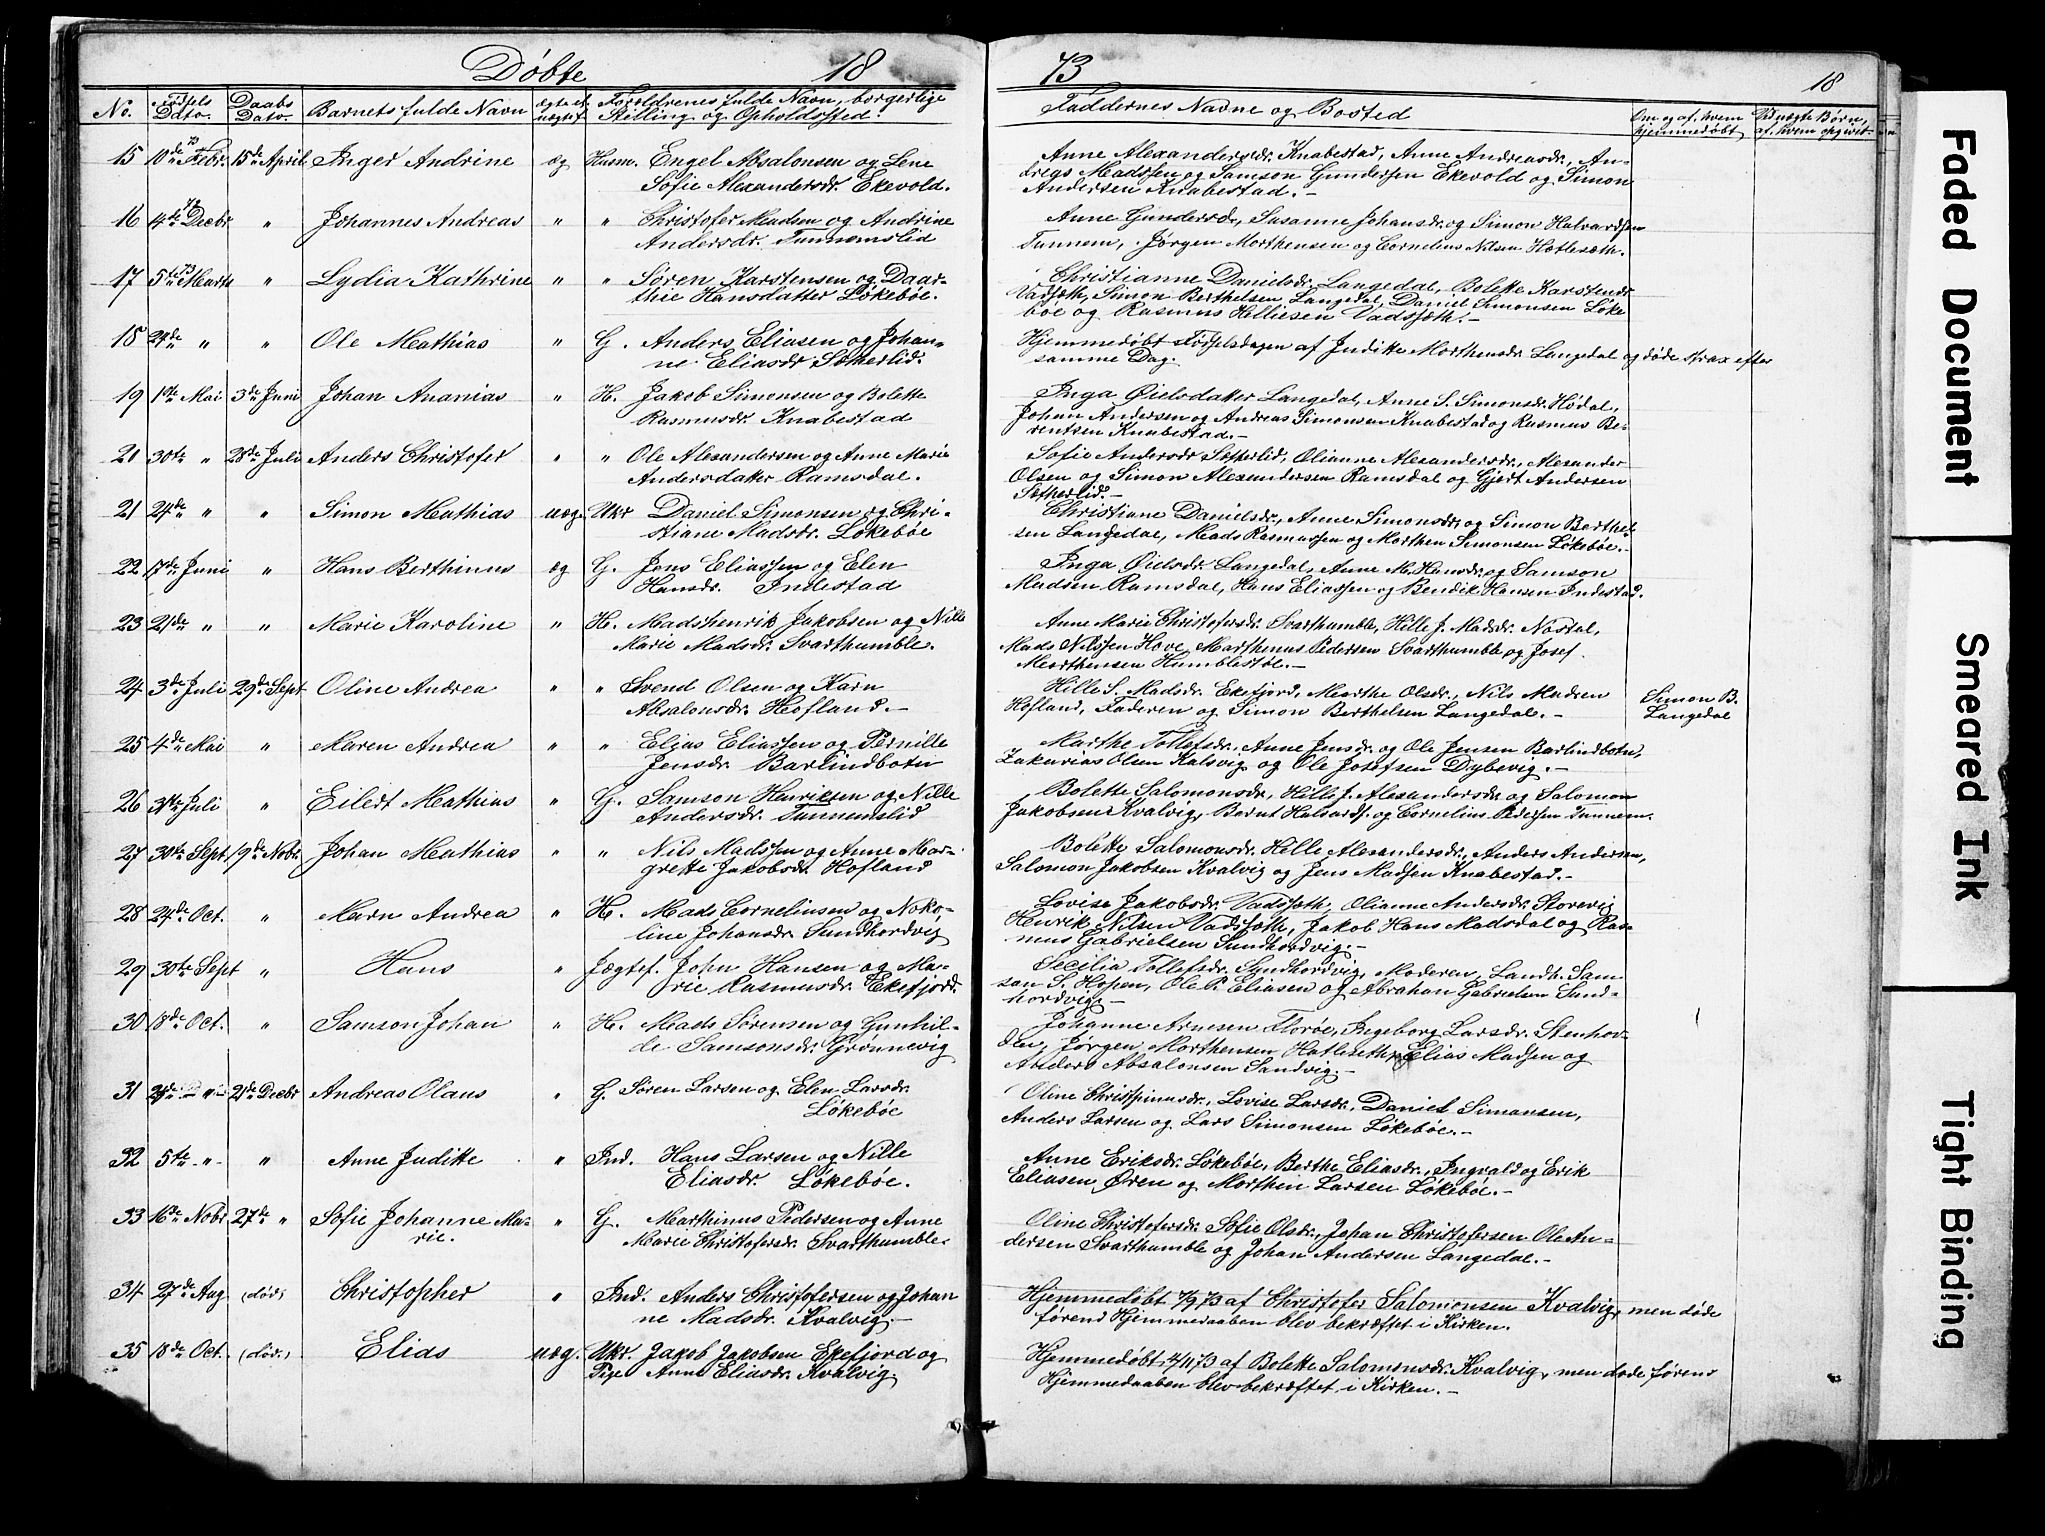 Døbte 18
73
18
No. Fødsels Dato. Daabs Dato. Barnets fulde Navn ægte el. uægte Forældrenes fulde Navn, borgerlige Stilling og Opholdssted.
Faddernes Navne og Bosted
Om og af hvem hjemmedøbt
Ved uægte Børn, af hvem opgivet
15 10de Febr. 15de April Inger Andrine æg Husm. Engel Absalonsen og Lene
Sofie Alexandersdr. Ekevold.
Anne Alexandersdr. Knabestad, Anne Andreasdr., An-
dreas Madssen og Samson Gundersen Ekevold og Simon
Andersen Knabestad. -
16 4de 72 Decbr " Johannes Andreas " " Christofer Madsen og Andrine
Andersdr. Tunnemslid
Anne Gundersdr., Susanne Johansdr. og Simon Halvardsen
Tunnem, Jørgen Morthensen og Cornelius Nilsen Hatlesæth.
17 5te 73 Marts " Lydia Kathrine " " Søren Karstensen og Daar-
thie Hansdatter Løkebøe.
Christianne Danielsdr. Langedal, Bolette Karstensdr
Vadsæth, Simon Berthelsen Langedal, Daniel Simonsen Løke
bøe og Rasmus Helliesen Vadssæth. -
18 24de " " Ole Mathias " G. Anders Eliasen og Johan-
ne Eliasdr Sætherlid.
Hjemmedøbt Fødselsdagen af Juditte Morthensdr. Langedal og døde strax efter
samme Dag.
19 1ste Mai 3de Juni Johan Ananias " H. Jakob Simonsen og Bolette
Rasmusdr. Knabestad
Inga Øielsdatter Langedal, Anne S. Simonsdr. Hødal,
Johan Andersen og Andreas Simonsen Knabestad og Rasmus Be-
rentsen Knabestad. -
20 30te " 28de Juli Anders Christofer " " Ole Alexandersen og Anne Marie
Andersdatter Ramsdal.
Sofie Andersdr Sætherlid, Olianne Alexandersdr., Alexander
Olsen og Simon Alexandersen Ramsdal og Gjert Andersen
Sætherlid. -
21 24de " " Simon Mathias uæg. Ukr Daniel Simonsen og Chri-
stiane Madsdr. Løkebøe
Christiane Danielsdr., Anne Simonsdr. og Simon Berthel-
sen Langedal, Mads Rasmussen og Morthen Simonsen Løkebøe. -
22 17de Juni " Hans Berthinus æg G. Jens Eliassen og Elen
Hansdr. Indestad
Inga Øielsdr. Langedal, Anne M. Hansdr. og Samson
Madsen Ramsdal, Hans Eliassen og Bendik Hansen Indestad.
23 21de " " Marie Karoline " H. Madshenrik Jakobsen og Nille
Marie Madsdr. Svarthumble.
Anne Marie Christofersdr. Svarthumble, Hille J. Madsdr. Nøstal,
Mads Nilssen Hove, Marthenus Pedersen Svarthumble og Josef
Morthensen Humblestøe. -
24 3de Juli 29de Sept Oline Andrea " " Svend Olsen og Karn
Absalonsdr. Hofland. -
Hille S. Madsdr. Ekefjord, Marthe Olsdr., Nils Madsen
Hofland, Faderen og Simon Berthelsen Langedal. -
Simon B.
Langedal
25 4de Mai " Maren Andrea " " Elias Eliassen og Pernille
Jensdr. Barlindbotn
Marthe Tollefsdr., Anne Jensdr. og Ole Jensen Barlindbotn,
Zakarias Olsen Kalsvig og Ole Josefsen Dybevig. -
26 31te Juli " Eilert Mathias " G. Samson Henriksen og Nille
Andersdr. Tunnemslid
Bolette Salomonsdr., Hille J. Alexandersdr og Salomon
Jakobsen Kvalvig, Bernt Halvards. og Cornelius Pedersen Tunnem.
27 30te Sept. 9de Nobr. Johan Mathias " " Nils Madssen og Anne Mar-
grette Jakobsdr. Hofland
Bolette Salomonsdr. Hille Alexandersdr., Anders Andersen,
Salomon Jakobsen Kvalvig og Jens Madsen Knabestad. -
28 24de Oct. " Marn Andrea " H. Mads Corneliusen og Noko-
line Johansdr. Sundhordvig
Lovise Jakobsdr. Vadssæth, Olianne Andersdr. Storevig
Henrik Nilsen Vadssæth, Jakob Hans Madsdal og Ras-
mus Gabrielsen Sundhordvig. -
29 30te Sept " Hans " Jægtef. John Hansen og Ma-
rie Rasmusdr. Ekefjord.
Secilia Tollefsdr. Sundhordvig, Moderen, Landh. Sam-
son S. Hopen, Ole P. Eliasen og Abraham Gabrielsen Sund-
hordvig. -
30 18de Oct. " Samson Johan " H. Mads Sørensen og Gunhil-
de Samsonsdr. Grønnevig
Johanne Arnesen Florøe, Ingeborg Larsdr. Stenhov-
den, Jørgen Morthensen Hatleseth, Elias Madsen og
Anders Absalonsen Sandvig. -
31 24de " 21de Decbr Andreas Olaus " G. Søren Larsen og Elen Larsdr.
Løkebøe
Oline Christpinusdr., Lovise Larsdr., Daniel Simonsen,
Anders Larsen og Lars Simonsen Løkebøe. -
32 5te - " - " Anne Juditte " Ind. Hans Larsen og Nille
Eliasdr Løkebøe.
Anne Eriksdr. Løkebøe, Berthe Eliasdr., Ingvald og Erik
Eliasen Øren og Morthen Larsen Løkebøe. -
33 16de Nobr. 27de " Sofie Johanne Ma-
rie. " G. Marthinus Pedersen og Anne
Marie Christofersdr. Svarthumble.
Oline Christofersdr. Sofie Olsdr., Johan Christofersen Ole An-
dersen Svarthumble og Johan Andersen Langedal. -
34 27de Aug. (død.) Christopher " Ind. Anders Christofersen og Johan
ne Madsdr. Kvalvig. -
Hjemmedøbt 7/9 73 af Christofer Salomonsen Kvalvig, men døde
førend Hjemmedaaben blev bekræftet i Kirken.
35 18de Oct. (død.) Elias uæg. Ukr. Jakob Jakobsen Ekefjord og
Pige Anne Eliasdr. Kvalvig.
Hjemmedøbt 2/11 73 af Bolette Salomonsdr. Kvalvig, men døde førend
Hjemmedaaben blev bekræftet i Kirken. -
Faded Document
Smeared Ink
Tight Binding